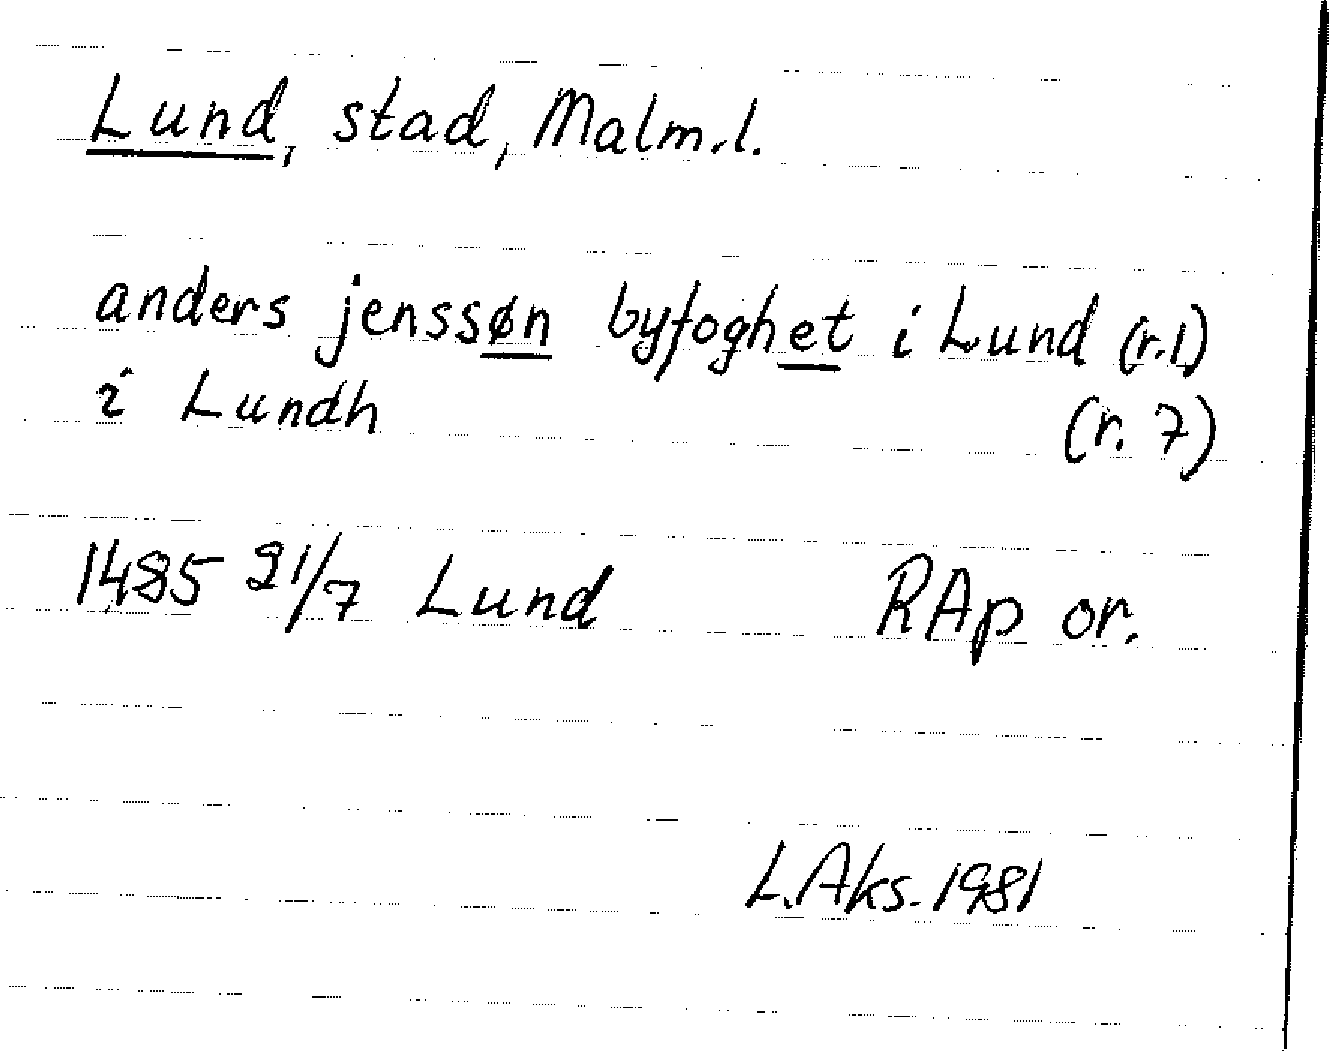 Lund, stad, Malm.l.
anders jenssøn byfoghet i Lund (r.1)
i Lundh (r. 7)
1485 21/7 Lund RAp or.
L.Aks. 1981